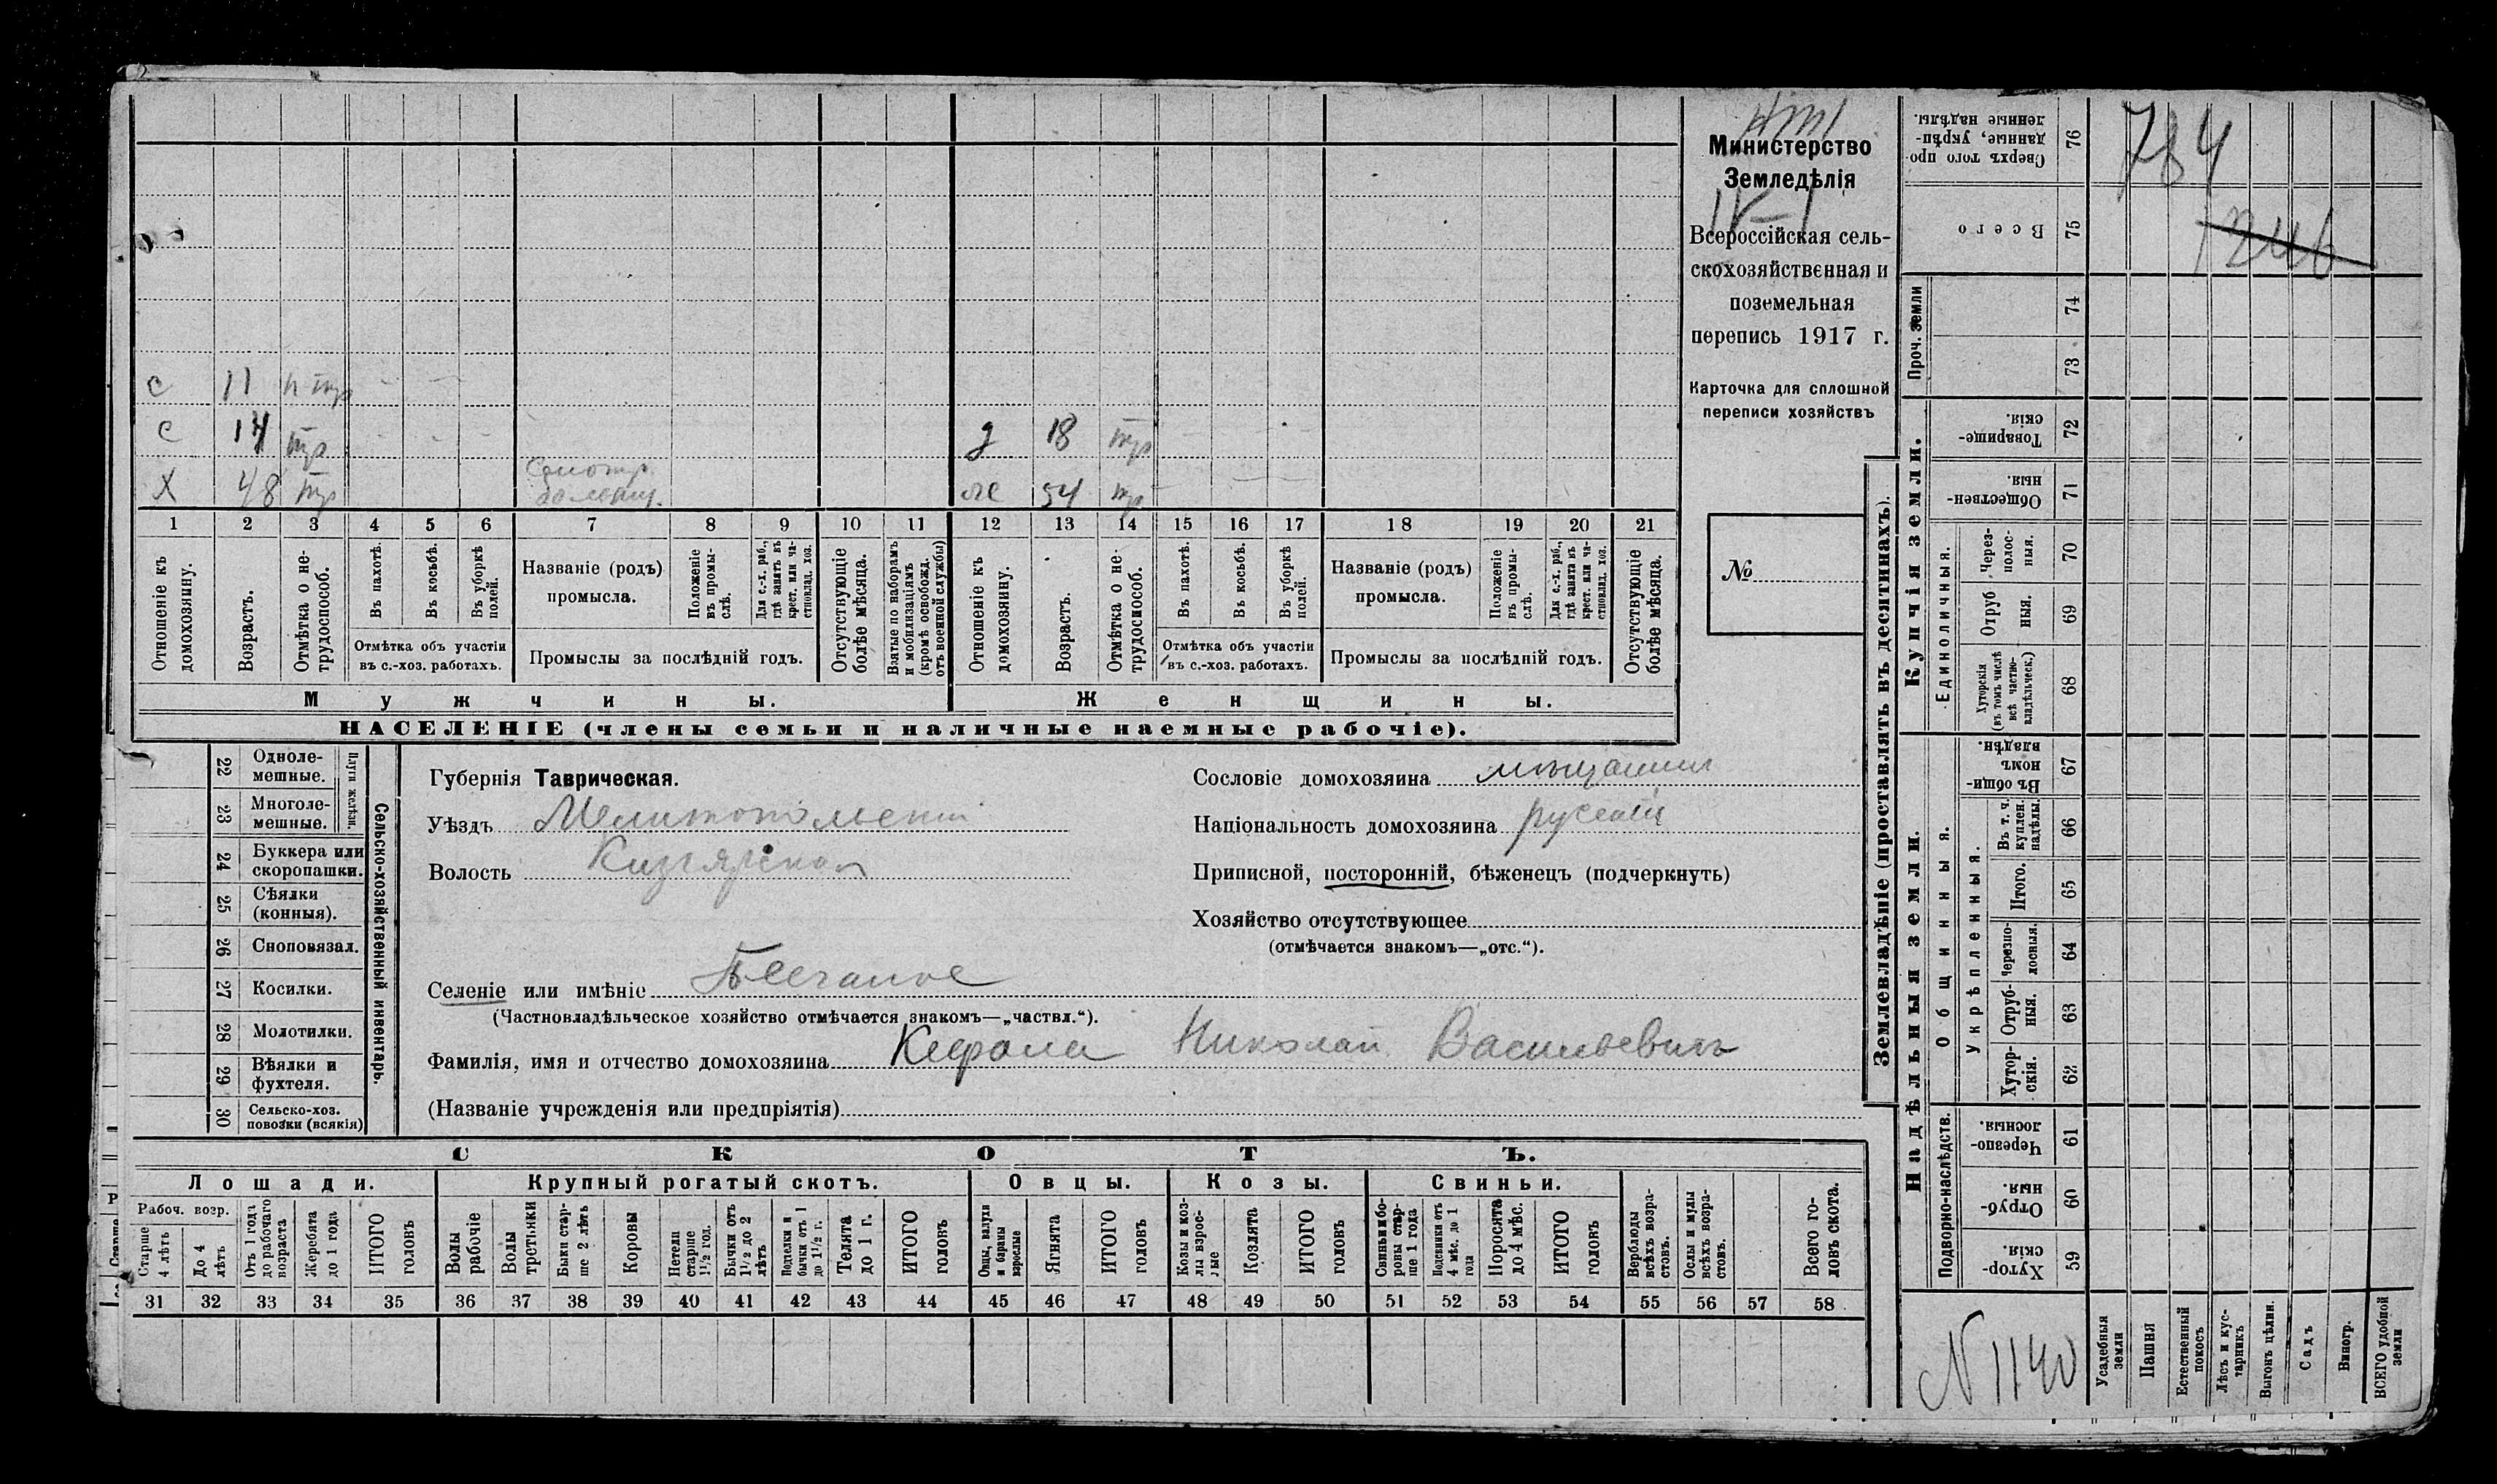 Министерство
Земледѣлія
IV–I
Всероссійская сель-
скохозяйственная и
поземельная
перепись 1917 г.
Карточка для сплошной
переписи хозяйствъ
№
с 11 н тр
с 14 тр
д 18 тр
Х 48 тр
же 54 тр
1 2 3 4 5 6 7 8 9 10 11 12 13 14 15 16 17 18 19 20 21
Отношеніе къ домохозяину.
Возрастъ.
Отмѣтка о не-трудоспособ.
Въ пахотѣ.
Въ косьбѣ.
Въ уборкѣ полей.
Отмѣтка объ участіи
въ с.-хоз. работахъ.
Названіе (родъ)
промысла.
Положеніе въ промы-слѣ.
Для с.-х. раб., гдѣ занятъ въ крест. или ча-стновлад. хоз.
Промыслы за послѣдній годъ.
Отсутствующіе болѣе мѣсяца.
Взятые по наборамъ и мобилизаціямъ (кромѣ освобожд. отъ военной службы)
Отношеніе къ домохозяину.
Возрастъ.
Отмѣтка о не-трудоспособ.
Въ пахотѣ.
Въ косьбѣ.
Въ уборкѣ полей.
Отмѣтка объ участіи
въ с.-хоз. работахъ.
Названіе (родъ)
промысла.
Положеніе въ промы-слѣ.
Для с.-х. раб., гдѣ занята въ крест. или ча-стновлад. хоз.
Промыслы за послѣдній годъ.
Отсутствующіе болѣе мѣсяца.
Мужчины.
Женщины.
НАСЕЛЕНІЕ (члены семьи и наличные наемные рабочіе).
22 Одноле-мешные.
23 Многоле-мешные.
Плуги желѣзн.
24 Буккера или скоропашки.
25 Сѣялки (конныя).
26 Сноповязал.
27 Косилки.
28 Молотилки.
29 Вѣялки и фухтеля.
30 Сельско-хоз. повозки (всякія)
Сельско-хозяйственный инвентарь.
Губернія Таврическая.
Уѣздъ Мелитопольскій
Волость Кизіярская
Селеніе или имѣніе Песчаное
(Частновладѣльческое хозяйство отмѣчается знакомъ—„частвл.“).
Фамилія, имя и отчество домохозяина Кефала Николай Васильевичъ
(Названіе учрежденія или предпріятія)
Сословіе домохозяина мѣщанин
Національность домохозяина русскій
Приписной, посторонній, бѣженецъ (подчеркнуть)
Хозяйство отсутствующее
(отмѣчается знакомъ—„отс.“).
СКОТЪ.
Лошади.
Крупный рогатый скотъ.
Овцы.
Козы.
Свиньи.
Рабоч. возр.
Старше 4 лѣтъ
До 4 лѣтъ
Отъ 1 года до рабочаго возраста
Жеребята до 1 года
ИТОГО головъ
Волы рабочіе
Волы третьяки
Быки стар-ше 2 лѣтъ
Коровы
Нетели старше 1½ год.
Бычки отъ 1½ до 2 лѣтъ
Подтелки и бычки отъ 1 до 1½ г.
Телята до 1 г.
ИТОГО головъ
Овцы, валухи и бараны взрослые
Ягнята
ИТОГО головъ
Козы и коз-лы взрос-лые
Козлята
ИТОГО головъ
Свиньи и бо-ровы стар-ше 1 года
Подсвинки отъ 4 мѣс. до 1 года
Поросята до 4 мѣс.
ИТОГО головъ
Верблюды всѣхъ возра-стовъ.
Ослы и мулы всѣхъ возра-стовъ.
Всего го-ловъ скота.
31 32 33 34 35 36 37 38 39 40 41 42 43 44 45 46 47 48 49 50 51 52 53 54 55 56 57 58
Землевладѣніе (проставлять въ десятинахъ).
Купчія земли.
Надѣльныя земли.
76 Сверхъ того про-данные, укрѣп-ленные надѣлы.
75 Всего
Проч. земли
74
73
72 Товарище-скія.
71 Обществен-ныя.
Единоличныя.
70 Через-полос-ныя.
69 Отруб-ныя.
68 Хуторскія (въ томъ числѣ всѣ частно-владѣльческ.)
Общинныя.
67 Въ общи-номъ владѣн.
Укрѣпленныя.
66 Въ т. ч. куплен. надѣлы.
65 Итого.
64 Черезпо-лосныя.
63 Отруб-ныя.
62 Хутор-скія.
Подворно-наслѣдств.
61 Черезпо-лосныя.
60 Отруб-ныя.
59 Хутор-скія.
Усадебныя земли
Пашня
Естественный покосъ
Лѣсъ и кус-тарникъ
Выгонъ цѣлин.
Садъ
Виногр.
ВСЕГО удобной земли
784
N 1140